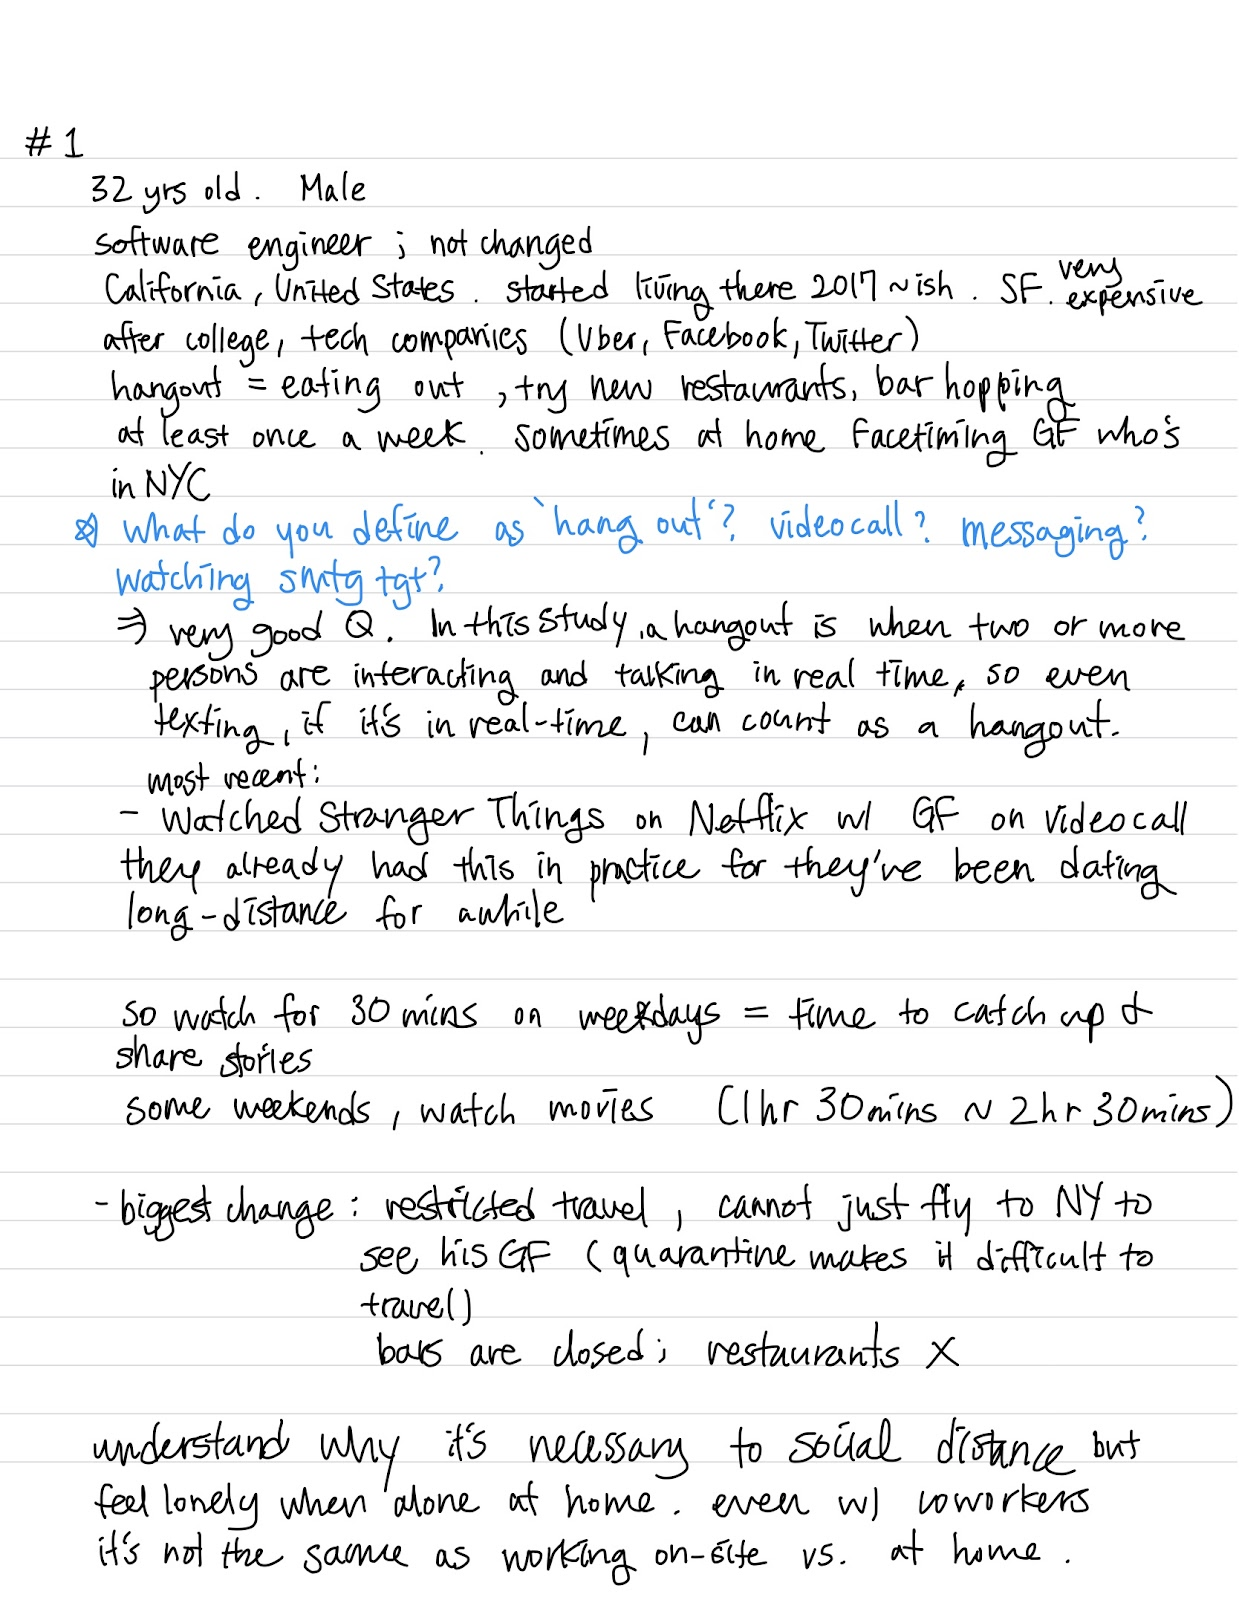 #1
32 yrs old. Male
software engineer ; not changed
California, United States. started living there 2017 ~ish. SF. very expensive
after college, tech companies (Uber, Facebook, Twitter)
hangout = eating out, try new restaurants, bar hopping
at least once a week. sometimes at home Facetiming GF who's
in NYC
☆ what do you define as 'hang out'? videocall? messaging?
watching smtg tgt?
⇒ very good Q. In this study, a hangout is when two or more
persons are interacting and talking in real time, so even
texting, if it's in real-time, can count as a hangout.
most recent:
- Watched Stranger Things on Netflix w/ GF on videocall
they already had this in practice for they've been dating
long-distance for awhile
so watch for 30 mins on weekdays = time to catch up &
share stories
some weekends, watch movies (1hr 30mins ~ 2hr 30mins)
- biggest change : restricted travel, cannot just fly to NY to
see his GF (quarantine makes it difficult to
travel)
bars are closed; restaurants X
understand why it's necessary to social distance but
feel lonely when alone at home. even w/ coworkers
it's not the same as working on-site vs. at home.